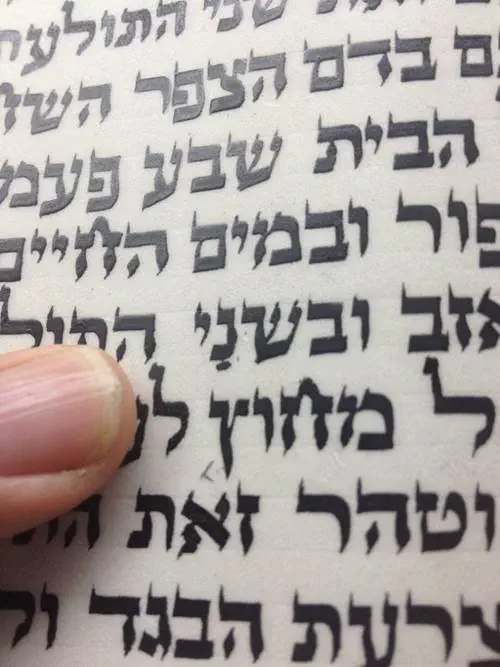 שני התולעת
ם בדם הצפר השח
הבית שבע פעמ
פור ובמים החיים
אזב ובשני התול
ל מחוץ לע
וטהר זאת הת
צרעת הבגד ול